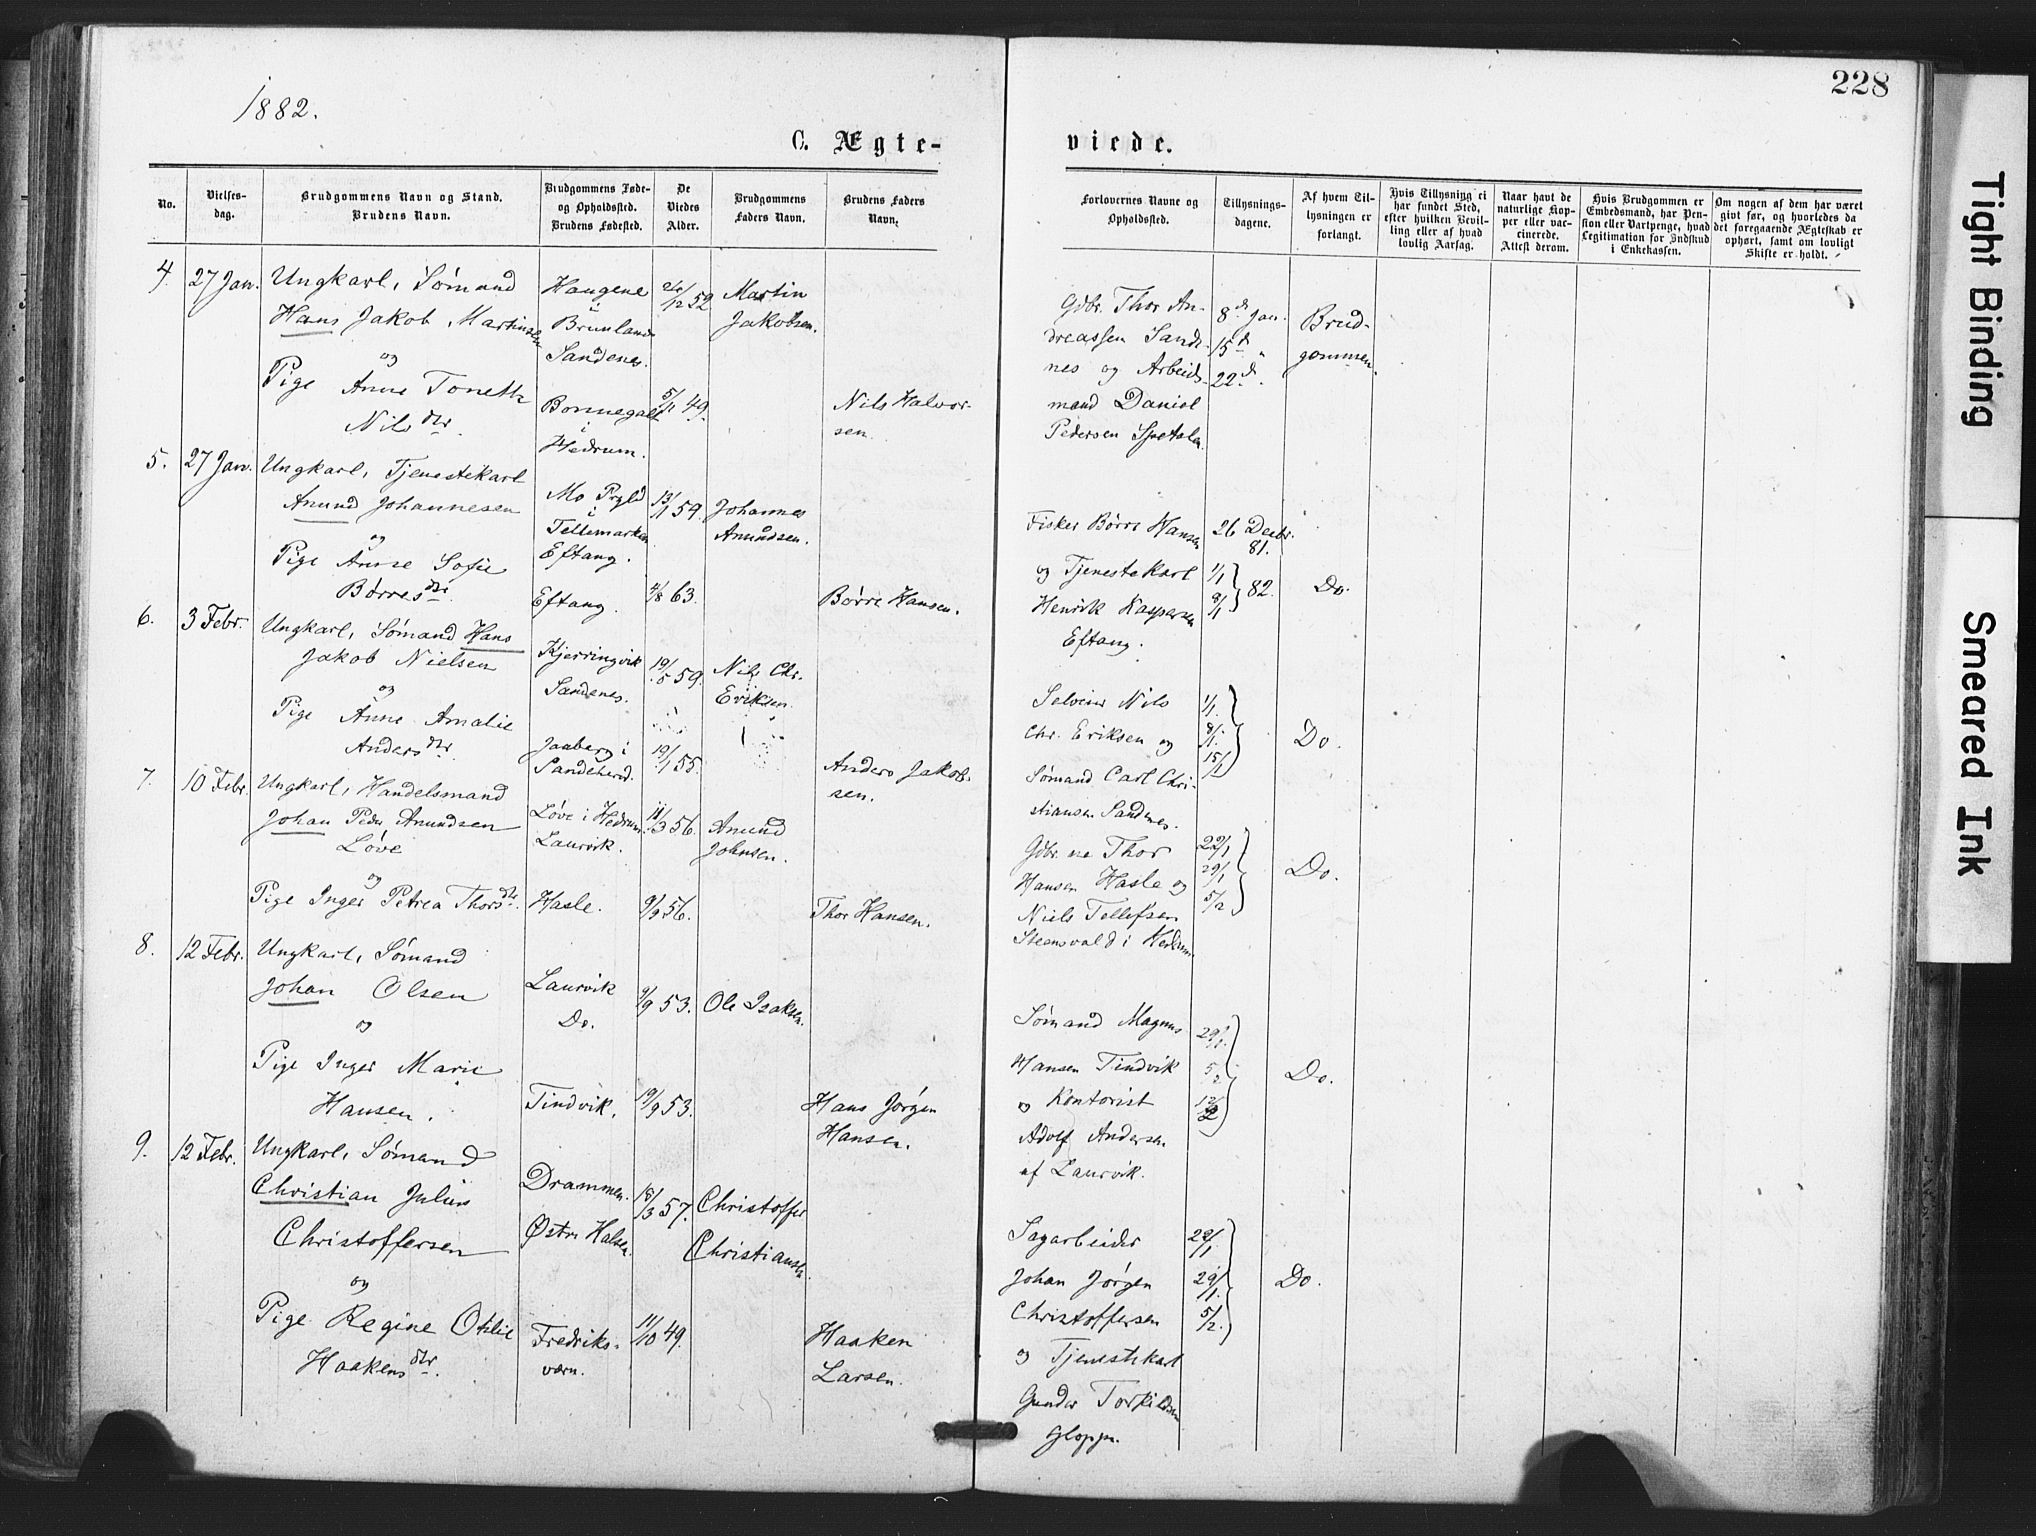 228
1882.
C. Ægte-
viede.
No.
Vielses-
dag.
Brudgommens Navn og Stand.
Brudens Navn.
Brudgommens Føde-
og Opholdssted.
Brudens Fødested.
De
Viedes
Alder.
Brudgommens
Faders Navn.
Brudens Faders
Navn.
Forlovernes Navne og
Opholdssted.
Tillysnings-
dagene.
Af hvem Til-
lysningen er
forlangt.
Hvis Tillysning ei
har fundet Sted,
efter hvilken Bevil-
ling eller af hvad
lovlig Aarsag.
Naar havt de
naturlige Kop-
per eller vac-
cinerede.
Attest derom.
Hvis Brudgommen er
Embedsmand, har Pen-
sion eller Vartpenge, hvad
Legitimation for Indskud
i Enkekassen.
Om nogen af dem har været
givt før, og hvorledes da
det foregaaende Ægteskab er
ophørt, samt om lovligt
Skifte er holdt.
4. 27 Jan.
Ungkarl, Sømand
Hans Jakob Martinsen
og
Pige Anne Toneth
Nilsdtr.
Haugene
i
Brunlanæs
Sandenes.
Bommegalt
i
Hedrum.
/12 52
5/11 49.
Martin
Jakobsen.
Nils Halvor-
sen.
Gdbr. Thor An-
dreassen Sande-
nes og Arbeids-
mand Daniel
Pedersen Spetalen
8de Jan.
15de "
22de.
Brud-
gommen.
5. 27 Jan.
Ungkarl, Tjenestekarl
Anund Johannesen
og
Pige Anne Sofie
Børresdtr.
Mo Prgld
i
Tellemarken
Eftang.
Eftang.
13/11 59.
/8 63.
Johannes
Anundsen.
Børre Hansen.
Fisker Børre Hansen
og Tjenestekarl
Henrik Kaspersen
Eftang.
26 Decbr.
81.
1/1
8/1 } 82.
Do.
6. 3 Febr.
Ungkarl, Sømand Hans
Jakob Nielsen
og
Pige Anne Amalie
Andersdtr.
Kjerringvik
Sandenes.
Jaaberg i
Sandeherred.
19/5 59.
19/1 55.
Nils Chr.
Eriksen.
Anders Jakob-
sen.
Selveier Nils
Chr. Eriksen og
Sømand Carl Chri-
stiansen Sandenes.
1/1.
8/1.
15/1
Do.
7. 10 Febr.
Ungkarl, Handelsmand
Johan Peder Anundsen
Løve
og
Pige Inger Petrea Thorsdtr.
Løve i Hedrum
Laurvik.
Hasle.
/3 56.
9/9 56.
Anund
Johnsen.
Thor Hansen.
Gdbr.ne Thor
Hansen Hasle og
Niels Tellefsen
Steensvald i Hedrum
22/1
29/1
5/2
Do.
8. 12 Febr.
Ungkarl, Sømand
Johan Olsen
og
Pige Inger Marie
Hansen.
Laurvik
Do.
Tindvik.
9/9 53.
19/9 53.
Ole Isaksen.
Hans Jørgen
Hansen.
Sømand Magnus
Hansen Tindvik
og Kontorist
Adolf Andersen
af Laurvik.
29/1.
5/2
12/2
Do.
9. 12 Febr.
Ungkarl, Sømand
Christian Julius
Christoffersen
og
Pige Regine Othlie
Haakensdtr.
Drammen.
Østre Halsen.
Fredriks-
værn.
18/3 57.
11/10 49.
Christoffer
Christiansen.
Haaken
Larsen.
Sagarbeider
Johan Jørgen
Christoffersen
og Tjenestekarl
Gunder Torkildsen
Gloppe.
22/1
29/1.
5/2.
Do.
Tight Binding
Smeared Ink